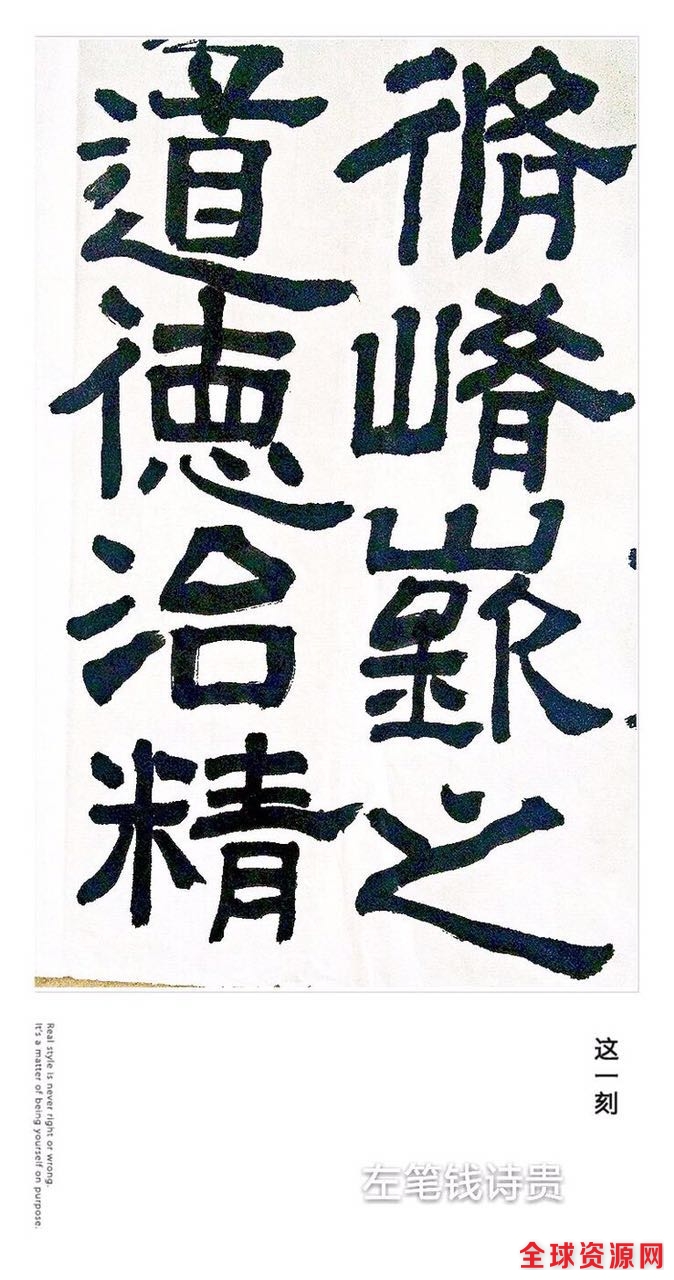 脩崤嶔之
道徳治精
这一刻
Real style is never right or wrong.
It's a matter of being yourself on purpose.
左笔钱诗贵
全球资源网